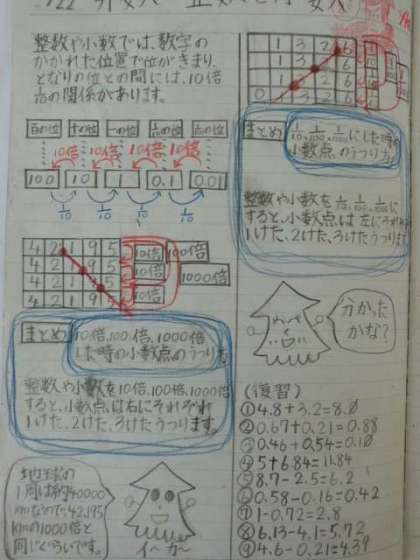 整数や小数では、数字の
かかれた位置で位がきまり、
となりの位との間には、10倍
1/10の関係があります。
百の位 十の位 一の位 1/10の位 1/100の位
10倍 10倍 10倍 10倍
100 10 1 0.1 0.01
1/10 1/10 1/10 1/10
4 2 1 9 5
4 2 1 9 5
4 2 1 9 5
4 2 1 9 5
10倍
10倍
10倍
100倍
1000倍
まとめ 10倍、100倍、1000倍
した時の小数点のうつり方
整数や小数を10倍、100倍、1000倍
すると、小数点は右にそれぞれ
1けた、2けた、3けたうつります。
地球の
1周は約40000
kmなので、42.195
kmの1000倍と
同じくらいです。
イ〜カ〜
1 3 2 6
1 3 2 6
1 3 2 6
0 1 3 2 6
まとめ 1/10、1/100、1/1000にした時の
小数点のうつり方
整数や小数を1/10、1/100、1/1000に
すると、小数点は左にそれぞれ
1けた、2けた、3けたうつります
分かった
かな?
(復習)
①4.8+3.2=8.0
②0.67+0.21=0.88
③0.46+0.54=1.00
④5+6.84=11.84
⑤8.7-2.5=6.2
⑥0.58-0.16=0.42
⑦1-0.72=2.8
⑧6.13-4.1=5.72
⑨4.6-0.21=4.39